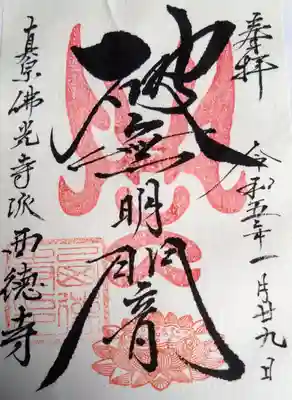 奉拝
令和五年一月廿九日
破無明闇
真宗佛光寺派
西徳寺